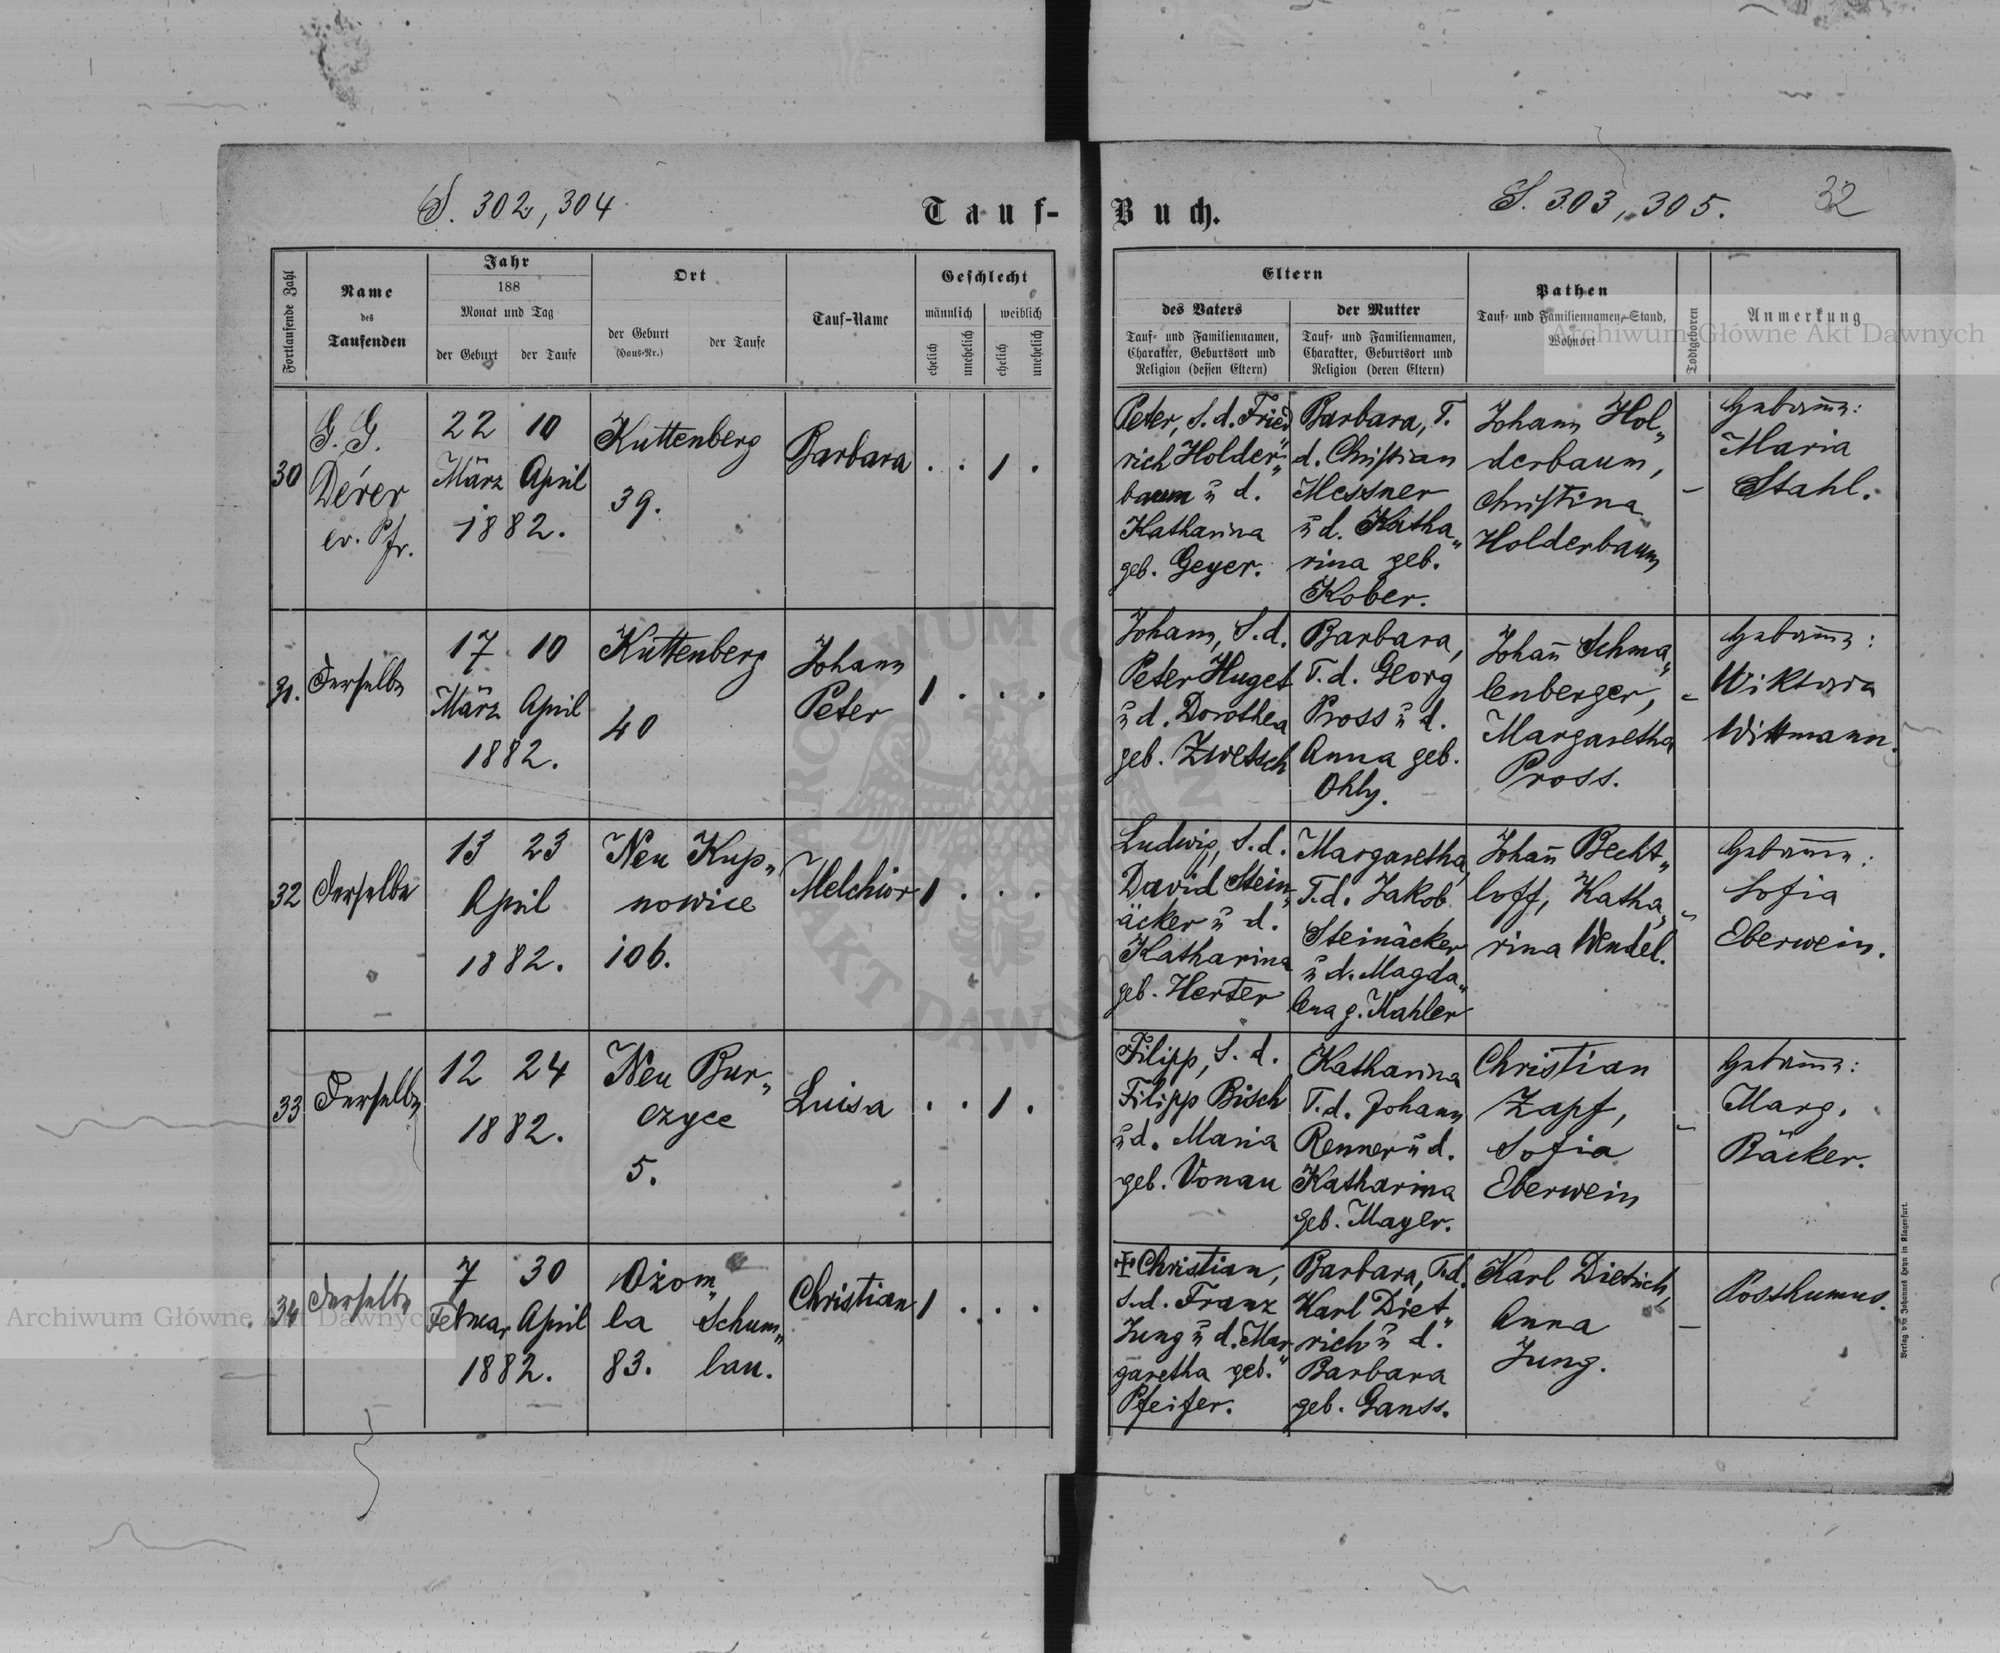 S. 302, 304
Tauf-
Buch.
S. 303, 305.
32
Fortlaufende Zahl
Name
des
Taufenden
Jahr
188
Monat und Tag
der Geburt
der Taufe
Ort
der Geburt
(Haus-Nr.)
der Taufe
Tauf-Name
Geschlecht
männlich
weiblich
ehelich
unehelich
ehelich
unehelich
Eltern
des Vaters
Tauf- und Familiennamen,
Charakter, Geburtsort und
Religion (dessen Eltern)
der Mutter
Tauf- und Familiennamen,
Charakter, Geburtsort und
Religion (deren Eltern)
Pathen
Tauf- und Familiennamen, Stand,
Wohnort
Todtgeboren
Anmerkung
30
G. G.
Dérer
ev. Pfr.
22 10
März April
1882.
Kuttenberg
39.
Barbara
. . 1 .
Peter, S. d. Fried„
rich Holder„
baum u d.
Katharina
geb. Geyer.
Barbara, T.
d. Christian
Messner
u d. Katha„
rina geb.
Kober.
Johann Hol„
derbaum,
Christina
Holderbaum
–
Hebamme:
Maria
Stahl.
31.
Derselbe
17 10
März April
1882.
Kuttenberg
40
Johann
Peter
1 . . .
Johann, S. d.
Peter Huget
u d. Dorothea
geb. Zwetsch
Barbara,
T. d. Georg
Pross u d.
Anna geb.
Ohly.
Johañ Schma„
lenberger,
Margaretha
Pross.
–
Hebam̄e:
Wiktoria
Wittmann.
32
Derselbe
13 23
April
1882.
Neu Kup„
nowice
106.
Melchior
1 . . .
Ludwig, S. d.
David Stein„
äcker u d.
Katharina
geb. Herter
Margaretha,
T. d. Jakob
Steinäcker
u d. Magda„
lena g. Kahler
Johañ Becht„
loff, Katha„
rina Wendel.
–
Hebamme:
Sofia
Eberwein.
33
Derselbe
12 24
1882.
Neu Bur„
czyce
5.
Luisa
. . 1 .
Filipp, S. d.
Filipp Bisch
u d. Maria
geb. Vonau
Katharina
T. d. Johann
Renner u d.
Katharina
geb. Mayer.
Christian
Zapf,
Sofia
Eberwein
–
Hebam̄e:
Marg.
Bäcker.
34
Derselbe
7 30
Februar April
1882.
Ożom„
la Schum„
83. lau.
Christian
1 . . .
✠ Christian,
S. d. Franz
Jung u d. Mar„
garetha geb.
Pfeifer.
Barbara, T. d.
Karl Diet„
rich u d.
Barbara
geb. Ganss.
Karl Dietrich,
Anna
Jung.
–
Posthumus.
Verlag von Johannes Heyn in Klagenfurt.
Archiwum Główne Akt Dawnych
Archiwum Główne Akt Dawnych